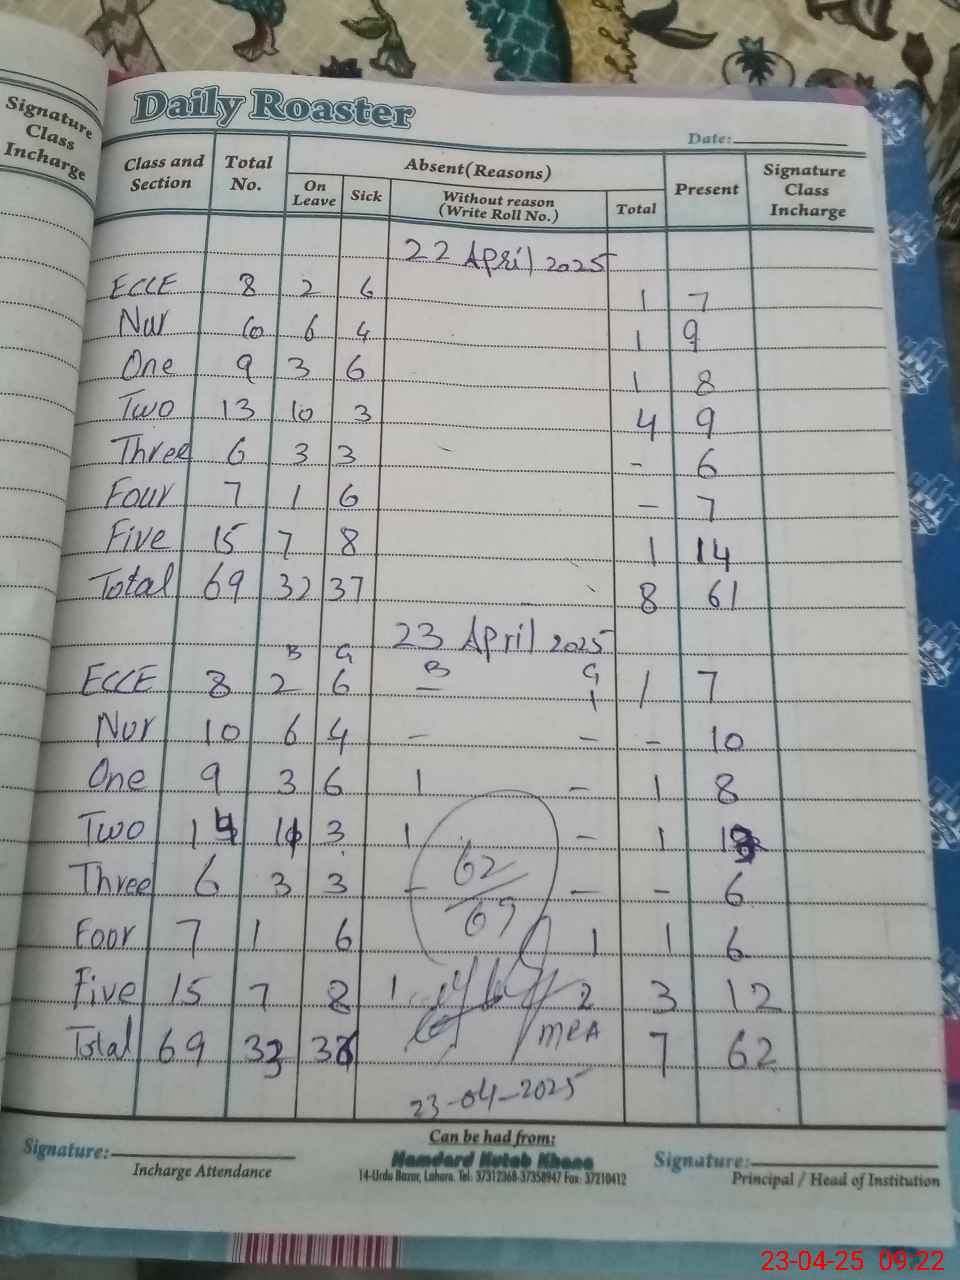 Signature
Class
Incharge
Daily Roaster
Date:
Class and Section Total No. Absent(Reasons) Present Signature Class Incharge
On Leave Sick Without reason (Write Roll No.) Total
22 April 2025
ECCE 8 2 6 1 7
Nur 10 6 4 1 9
One 9 3 6 1 8
Two 13 10 3 4 9
Three 6 3 3 - 6
Four 7 1 6 - 7
Five 15 7 8 1 14
Total 69 32 37 8 61
23 April 2025
B G B G
ECCE 8 2 6 - 1 1 7
Nur 10 6 4 - - - 10
One 9 3 6 1 - 1 8
Two 14 11 3 1 - 1
Three 6 3 3 - - - 6
Foor 7 1 6 1 1 6
Five 15 7 8 1 2 3 12
Total 69 33 36 7 62
62/69
MEA
23-04-2025
Signature: Incharge Attendance
Can be had from:
Hamdard Kutab Khana
14-Urdu Bazar, Lahore. Tel: 37312368-37358947 Fax: 37210412
Signature: Principal / Head of Institution
23-04-25 09:22